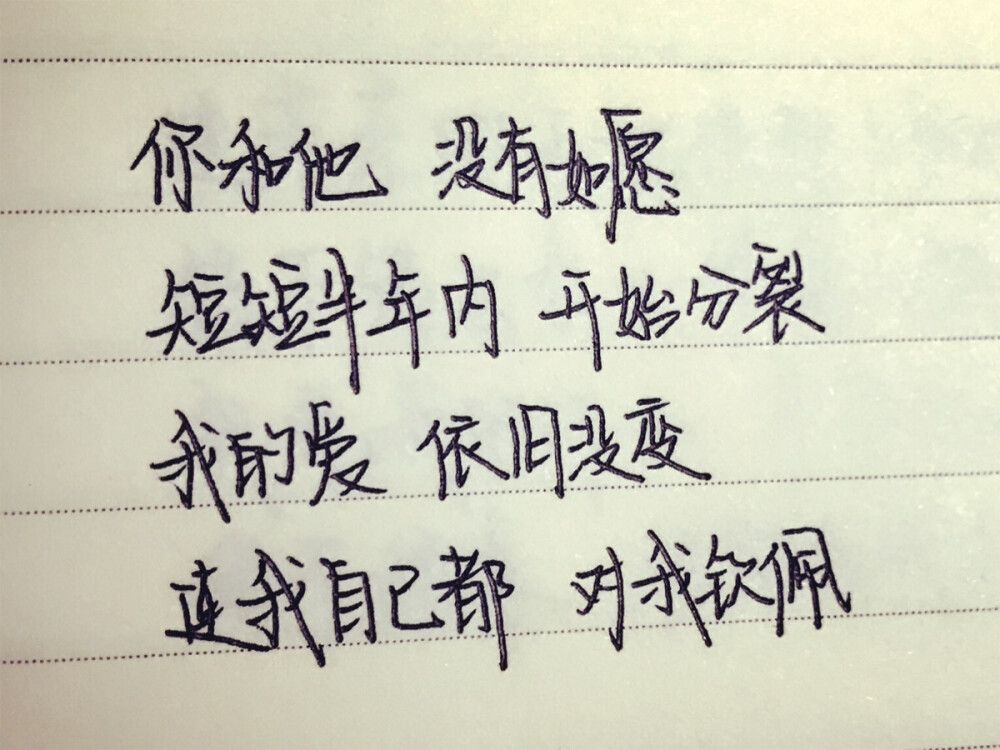 你和他 没有如愿
短短半年内 开始分裂
我的爱 依旧没变
连我自己都 对我钦佩